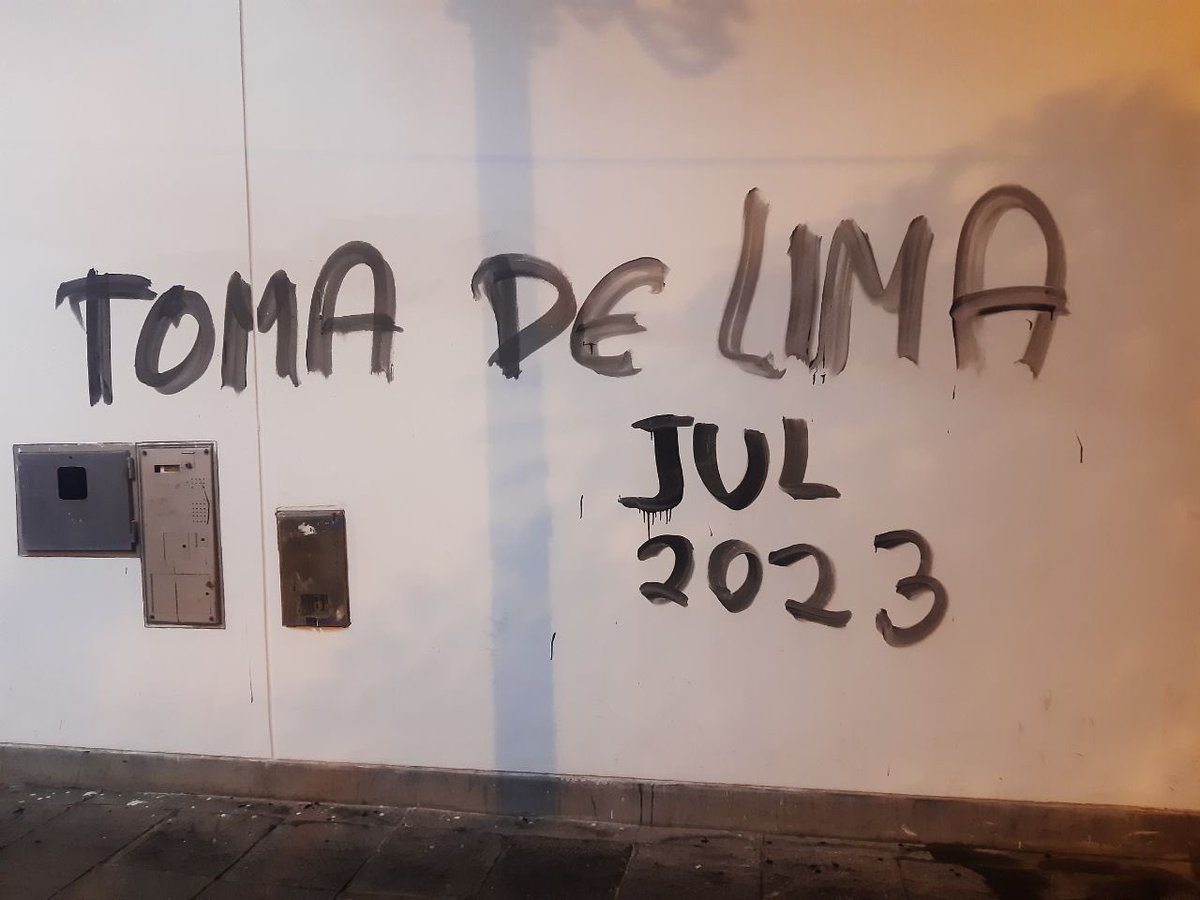 TOMA DE LIMA
JUL
2023